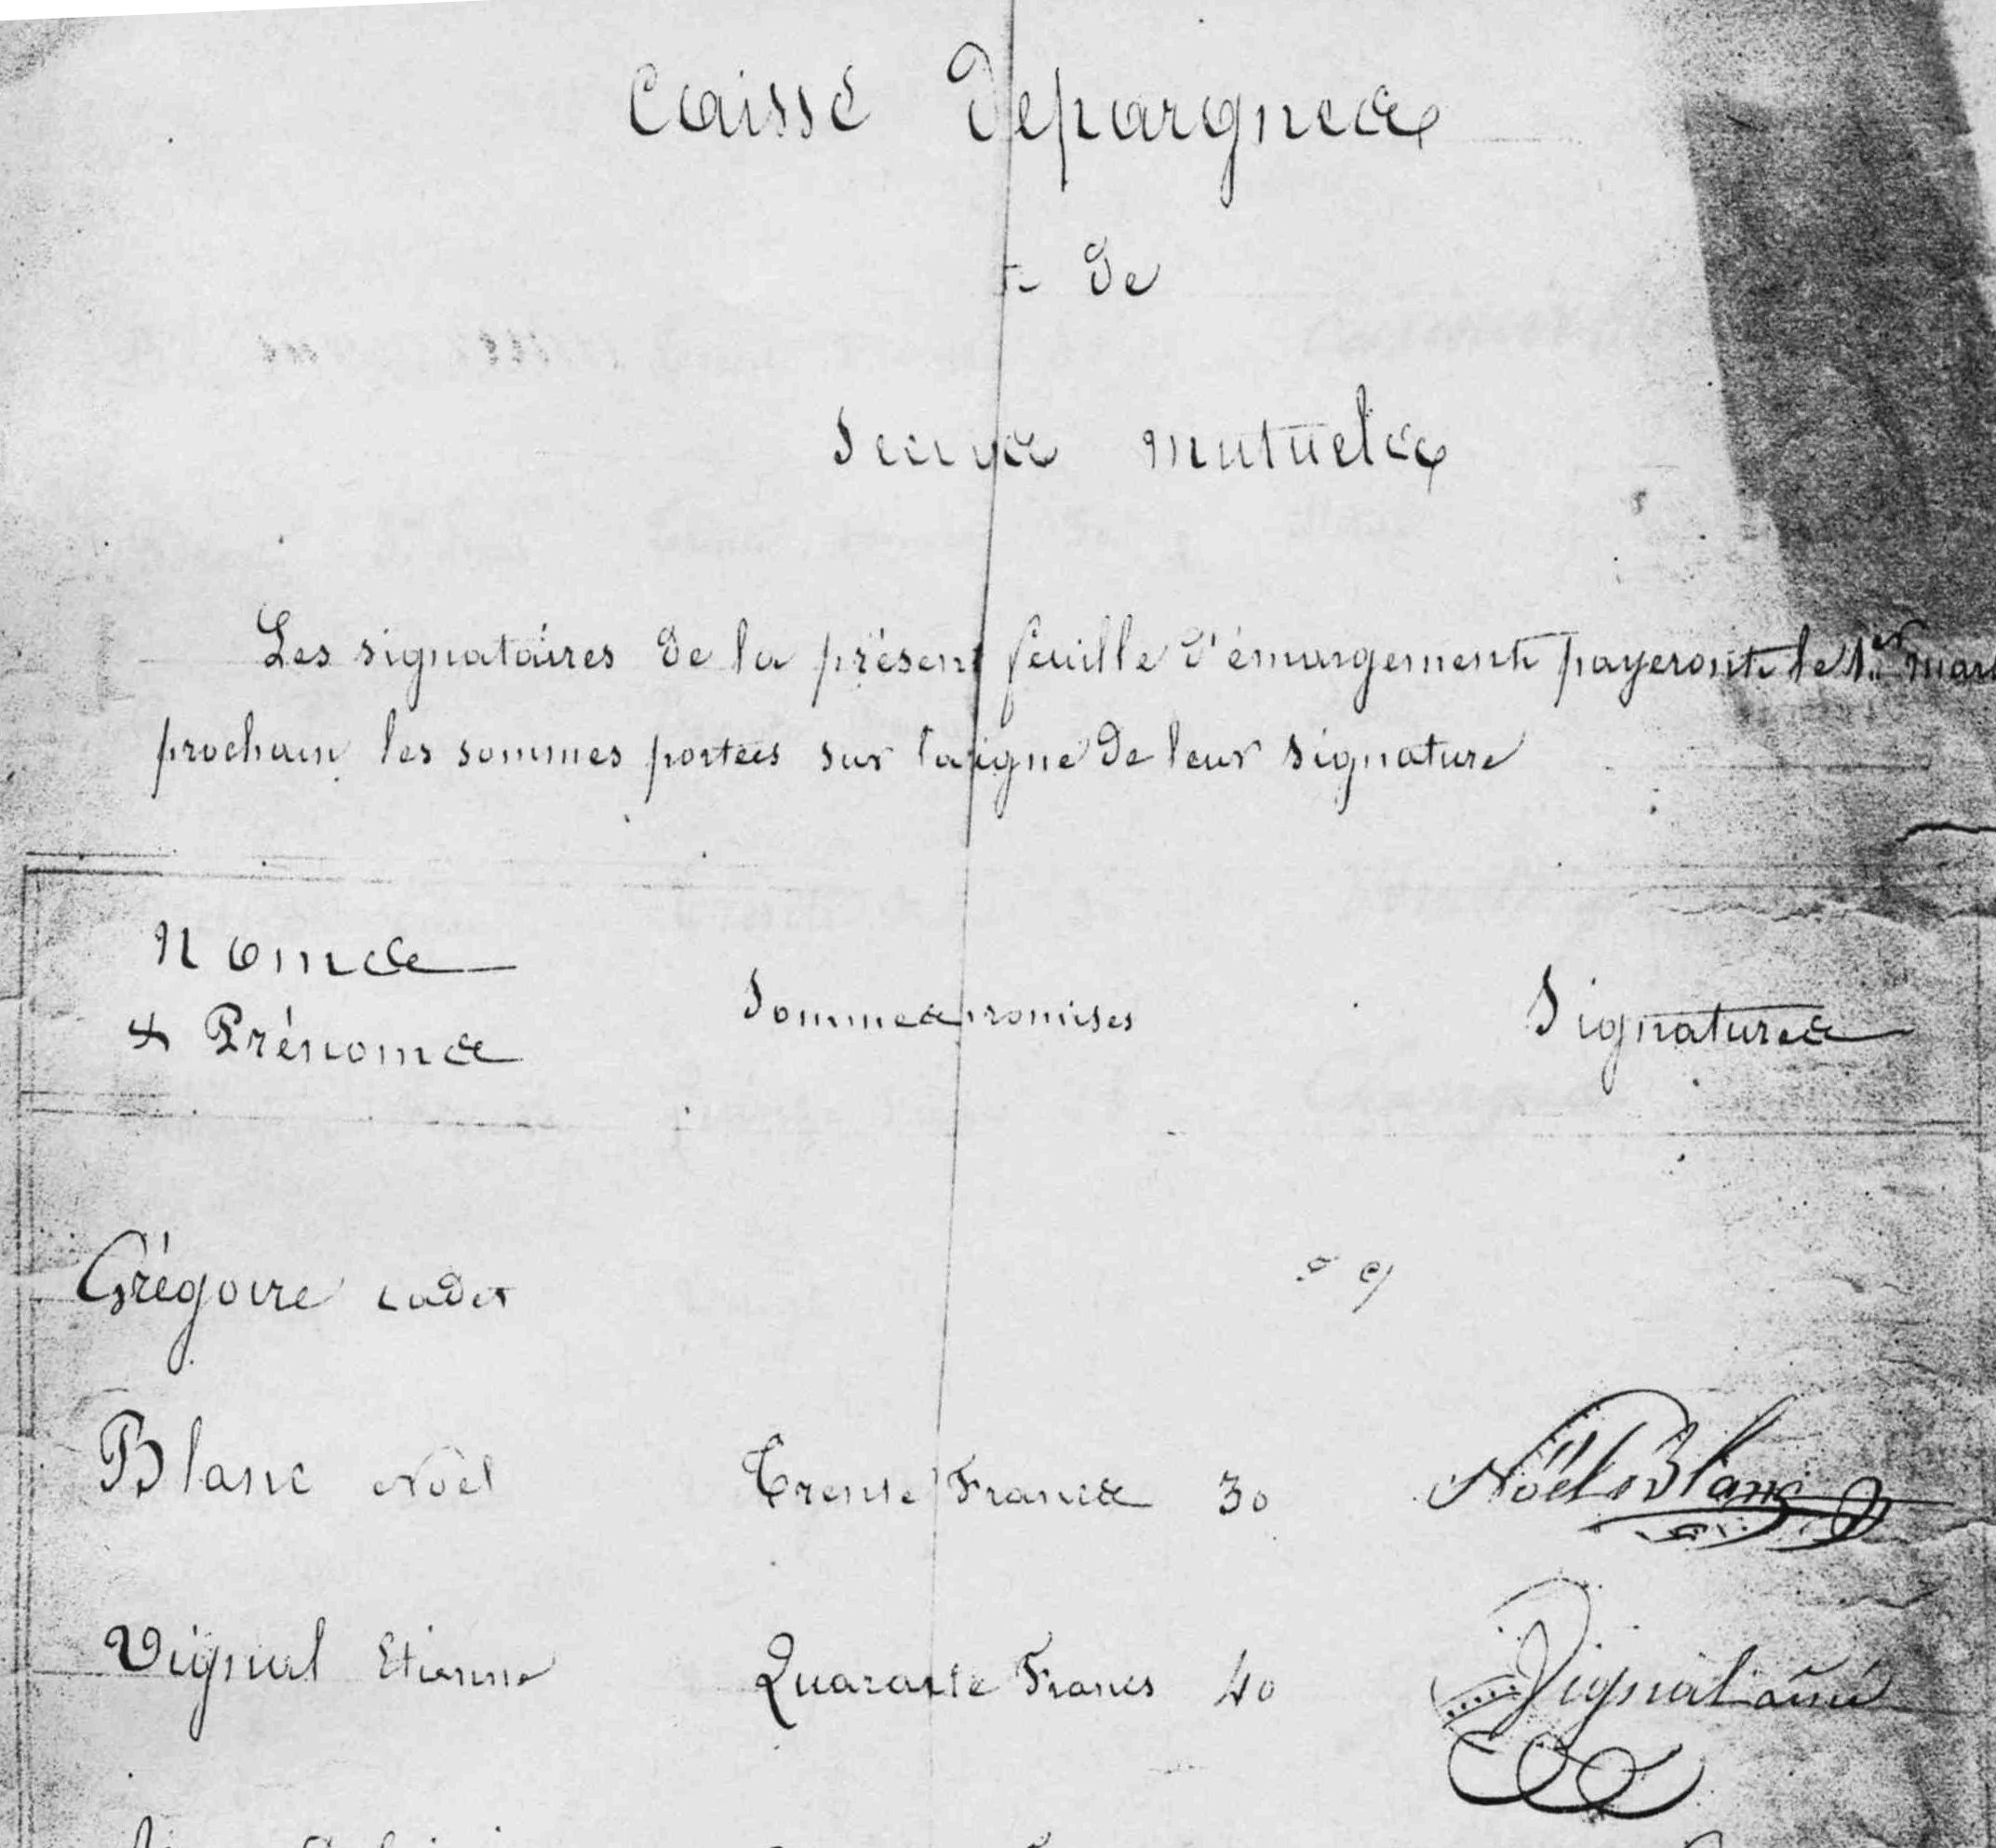 Caisse d'epargnes
de
Secours mutuels
Les signataires de la présent feuille d'émargement payeront le 1er mars
prochain les sommes portées sur la ligne de leur signature
Noms
& Prénoms
Sommes promises
Signatures
Grégoire cadet
Blanc Noël Trente Francs 30 Noël Blanc
Vignal Etienne Quarante Francs 40 Vignal ainé